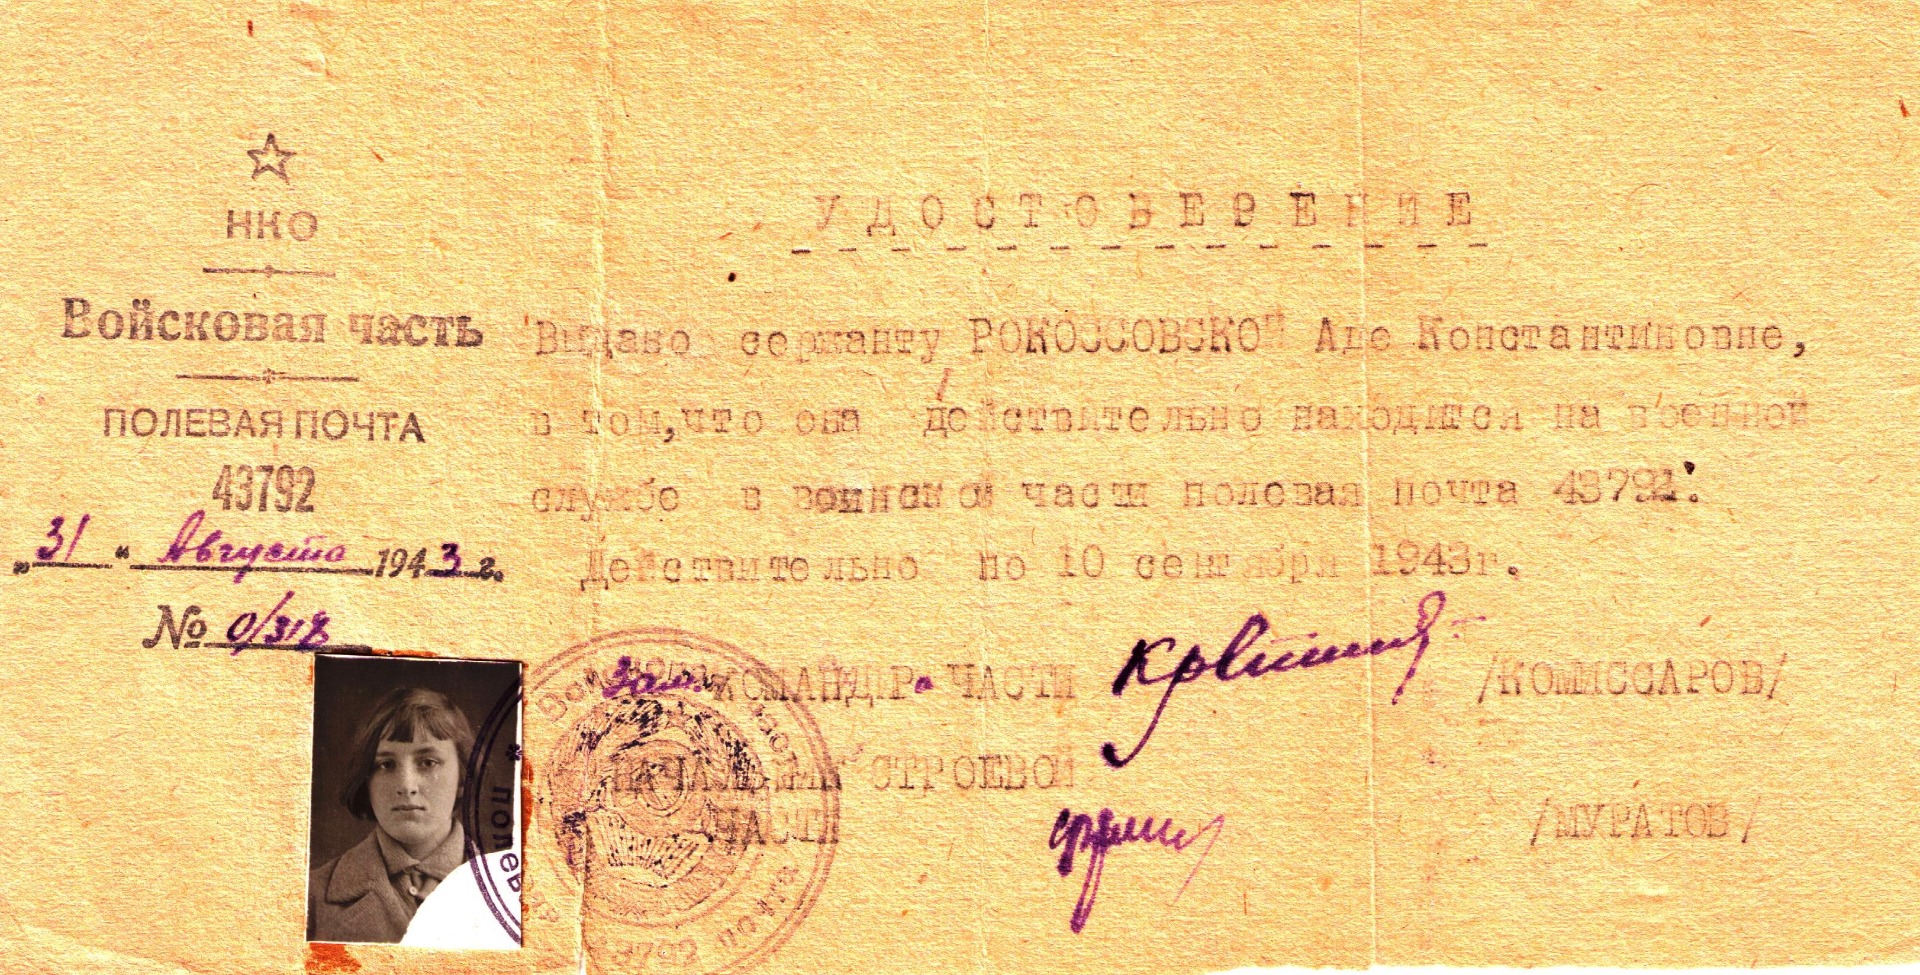 НКО
Войсковая часть
ПОЛЕВАЯ ПОЧТА
43792
"31" Августа 1943 г.
№ 0/318
УДОСТОВЕРЕНИЕ
Выдано сержанту РОКОССОВСКОЙ Аде Константиновне,
в том, что она действительно находится на военной
службе в воинской части полевая почта 43792.
Действительно по 10 сентября 1943г.
Зам. КОМАНДИРа ЧАСТИ /КОМИССАРОВ/
НАЧАЛЬНИК СТРОЕВОЙ
ЧАСТИ /МУРАТОВ/
Войсковая часть * полевая почта 43792